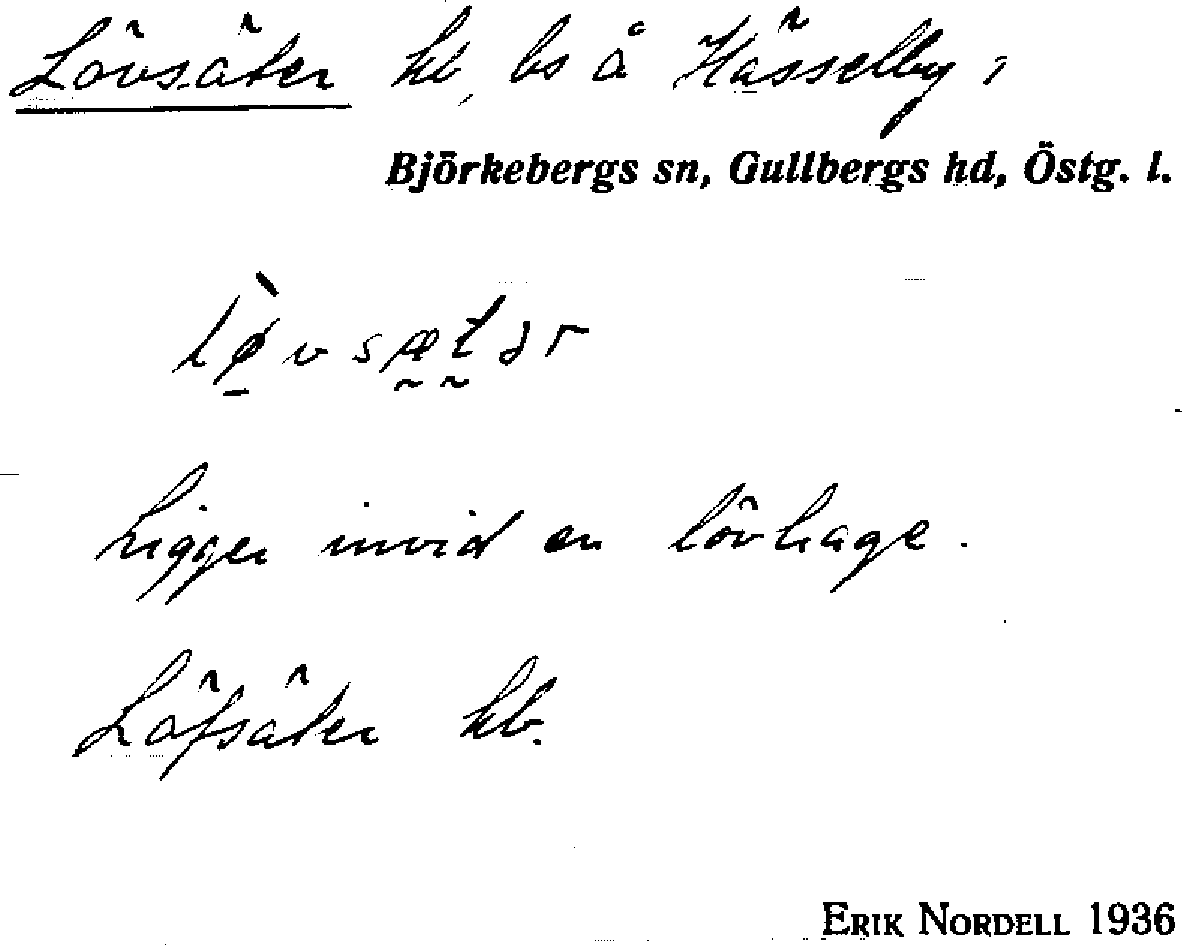 Lövsäter hb, bs å Hässelby,
Björkebergs sn, Gullbergs hd, Östg. l.
lø̀vsætər
Ligger invid en lövhage.
Löfsäter hb.
ERIK NORDELL 1936